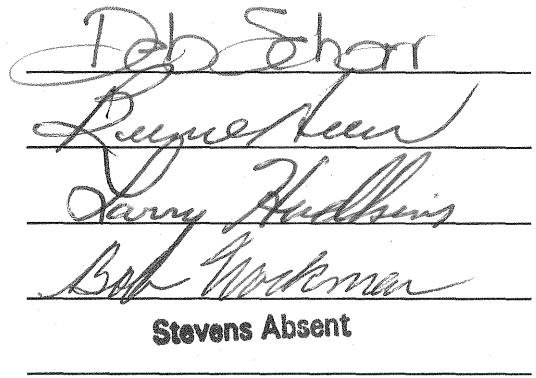 Deb Schorr
Larry Hudkins
Bob Workman
Stevens Absent